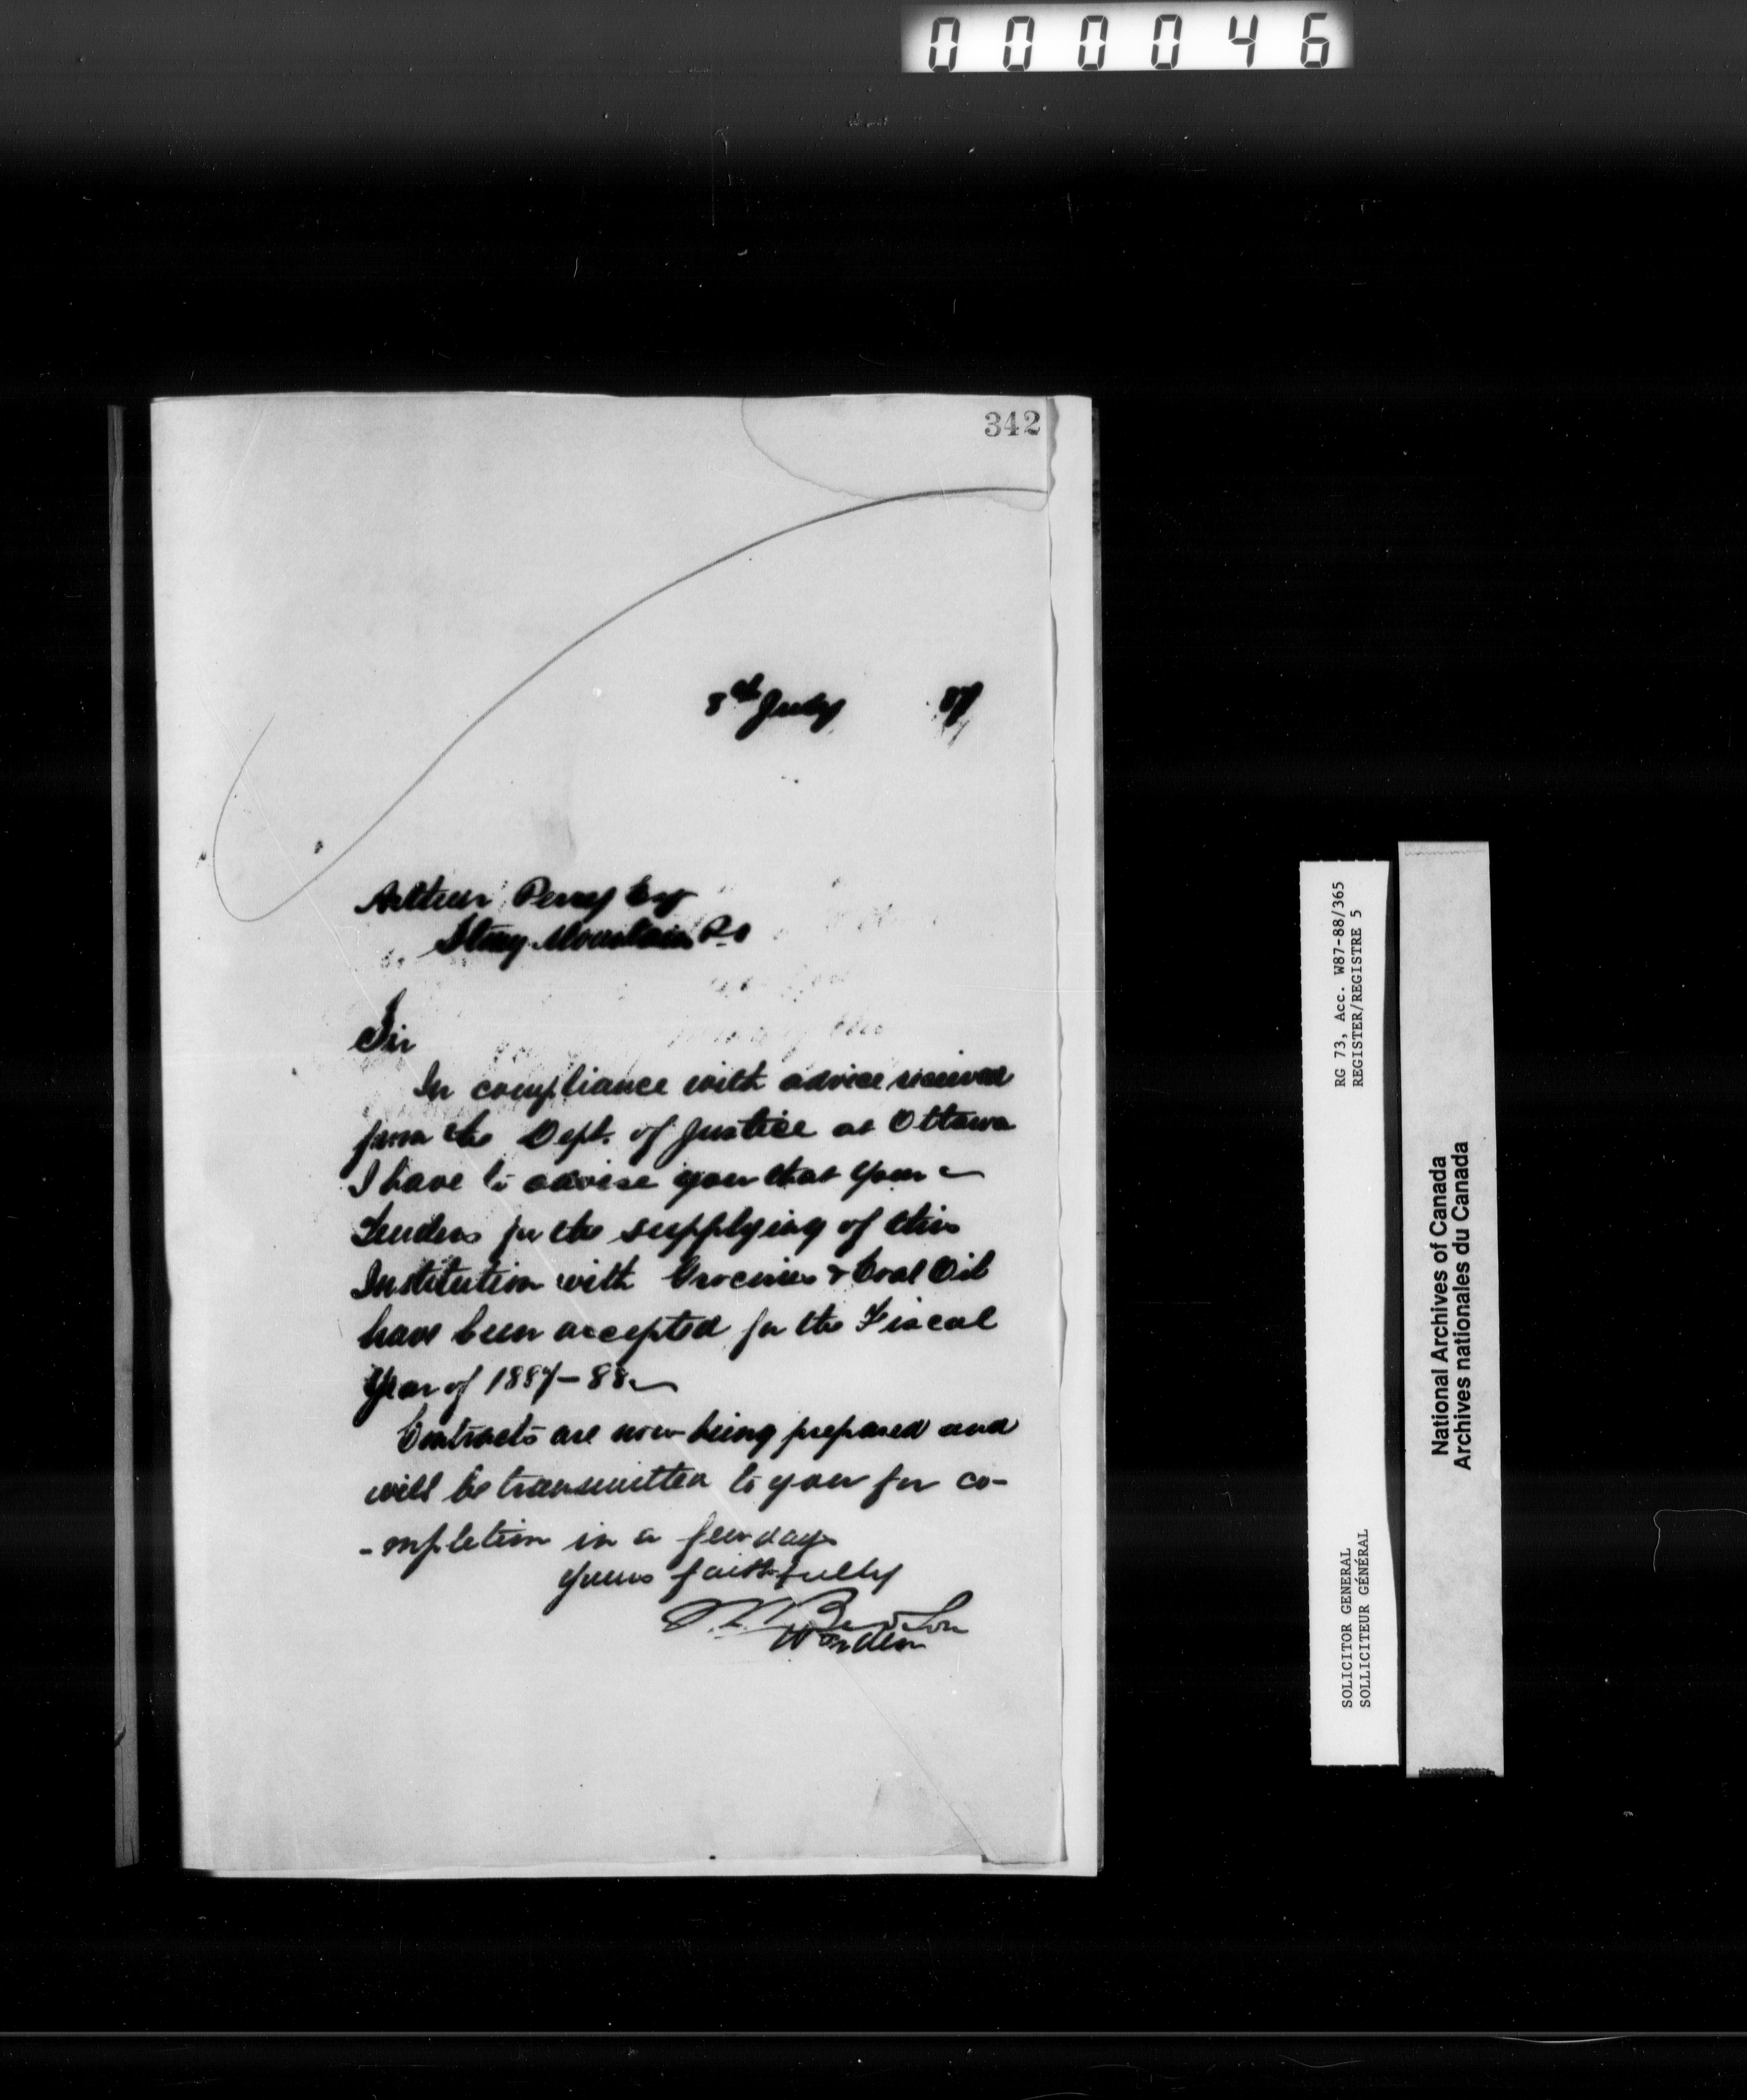 000046
342
8th July 87
Arthur Perry Esq
Stony Mountain P.O
Sir
In compliance with advice received
from the Dept. of Justice at Ottawa
I have to advise you that your
Tenders for the supplying of this
Institution with Groceries & Coal Oil
have been accepted for the Fiscal
Year of 1887-88.
Contracts are now being prepared and
will be transmitted to you for co-
-mpletion in a few days
Yours faithfully
Warden
RG 73, Acc. W87-88/365
REGISTER/REGISTRE 5
SOLICITOR GENERAL
SOLLICITEUR GÉNÉRAL
National Archives of Canada
Archives nationales du Canada